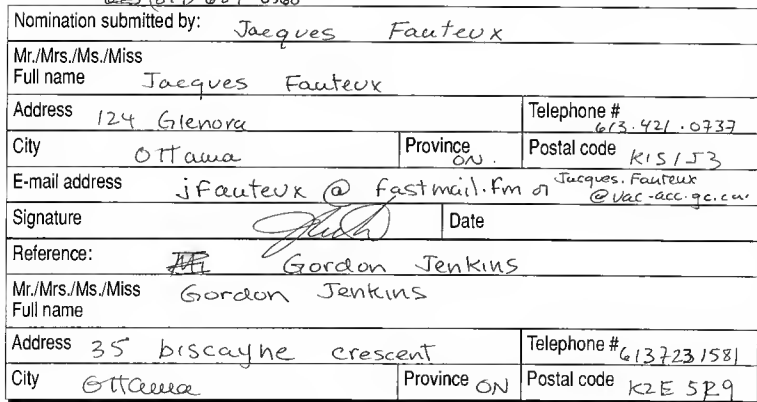 Nomination submitted by: Jacques Fauteux
Mr./Mrs./Ms./Miss
Full name Jacques Fauteux
Address 124 Glenora Telephone # 613.421.0737
City Ottawa Province ON. Postal code K1S 1J3
E-mail address jfauteux @ fastmail.fm or Jacques.Fauteux
@vac-acc.gc.ca
Signature Date
Reference: Gordon Jenkins
Mr./Mrs./Ms./Miss Gordon Jenkins
Full name
Address 35 biscayne crescent Telephone # 6137231581
City Ottawa Province ON Postal code K2E 5R9